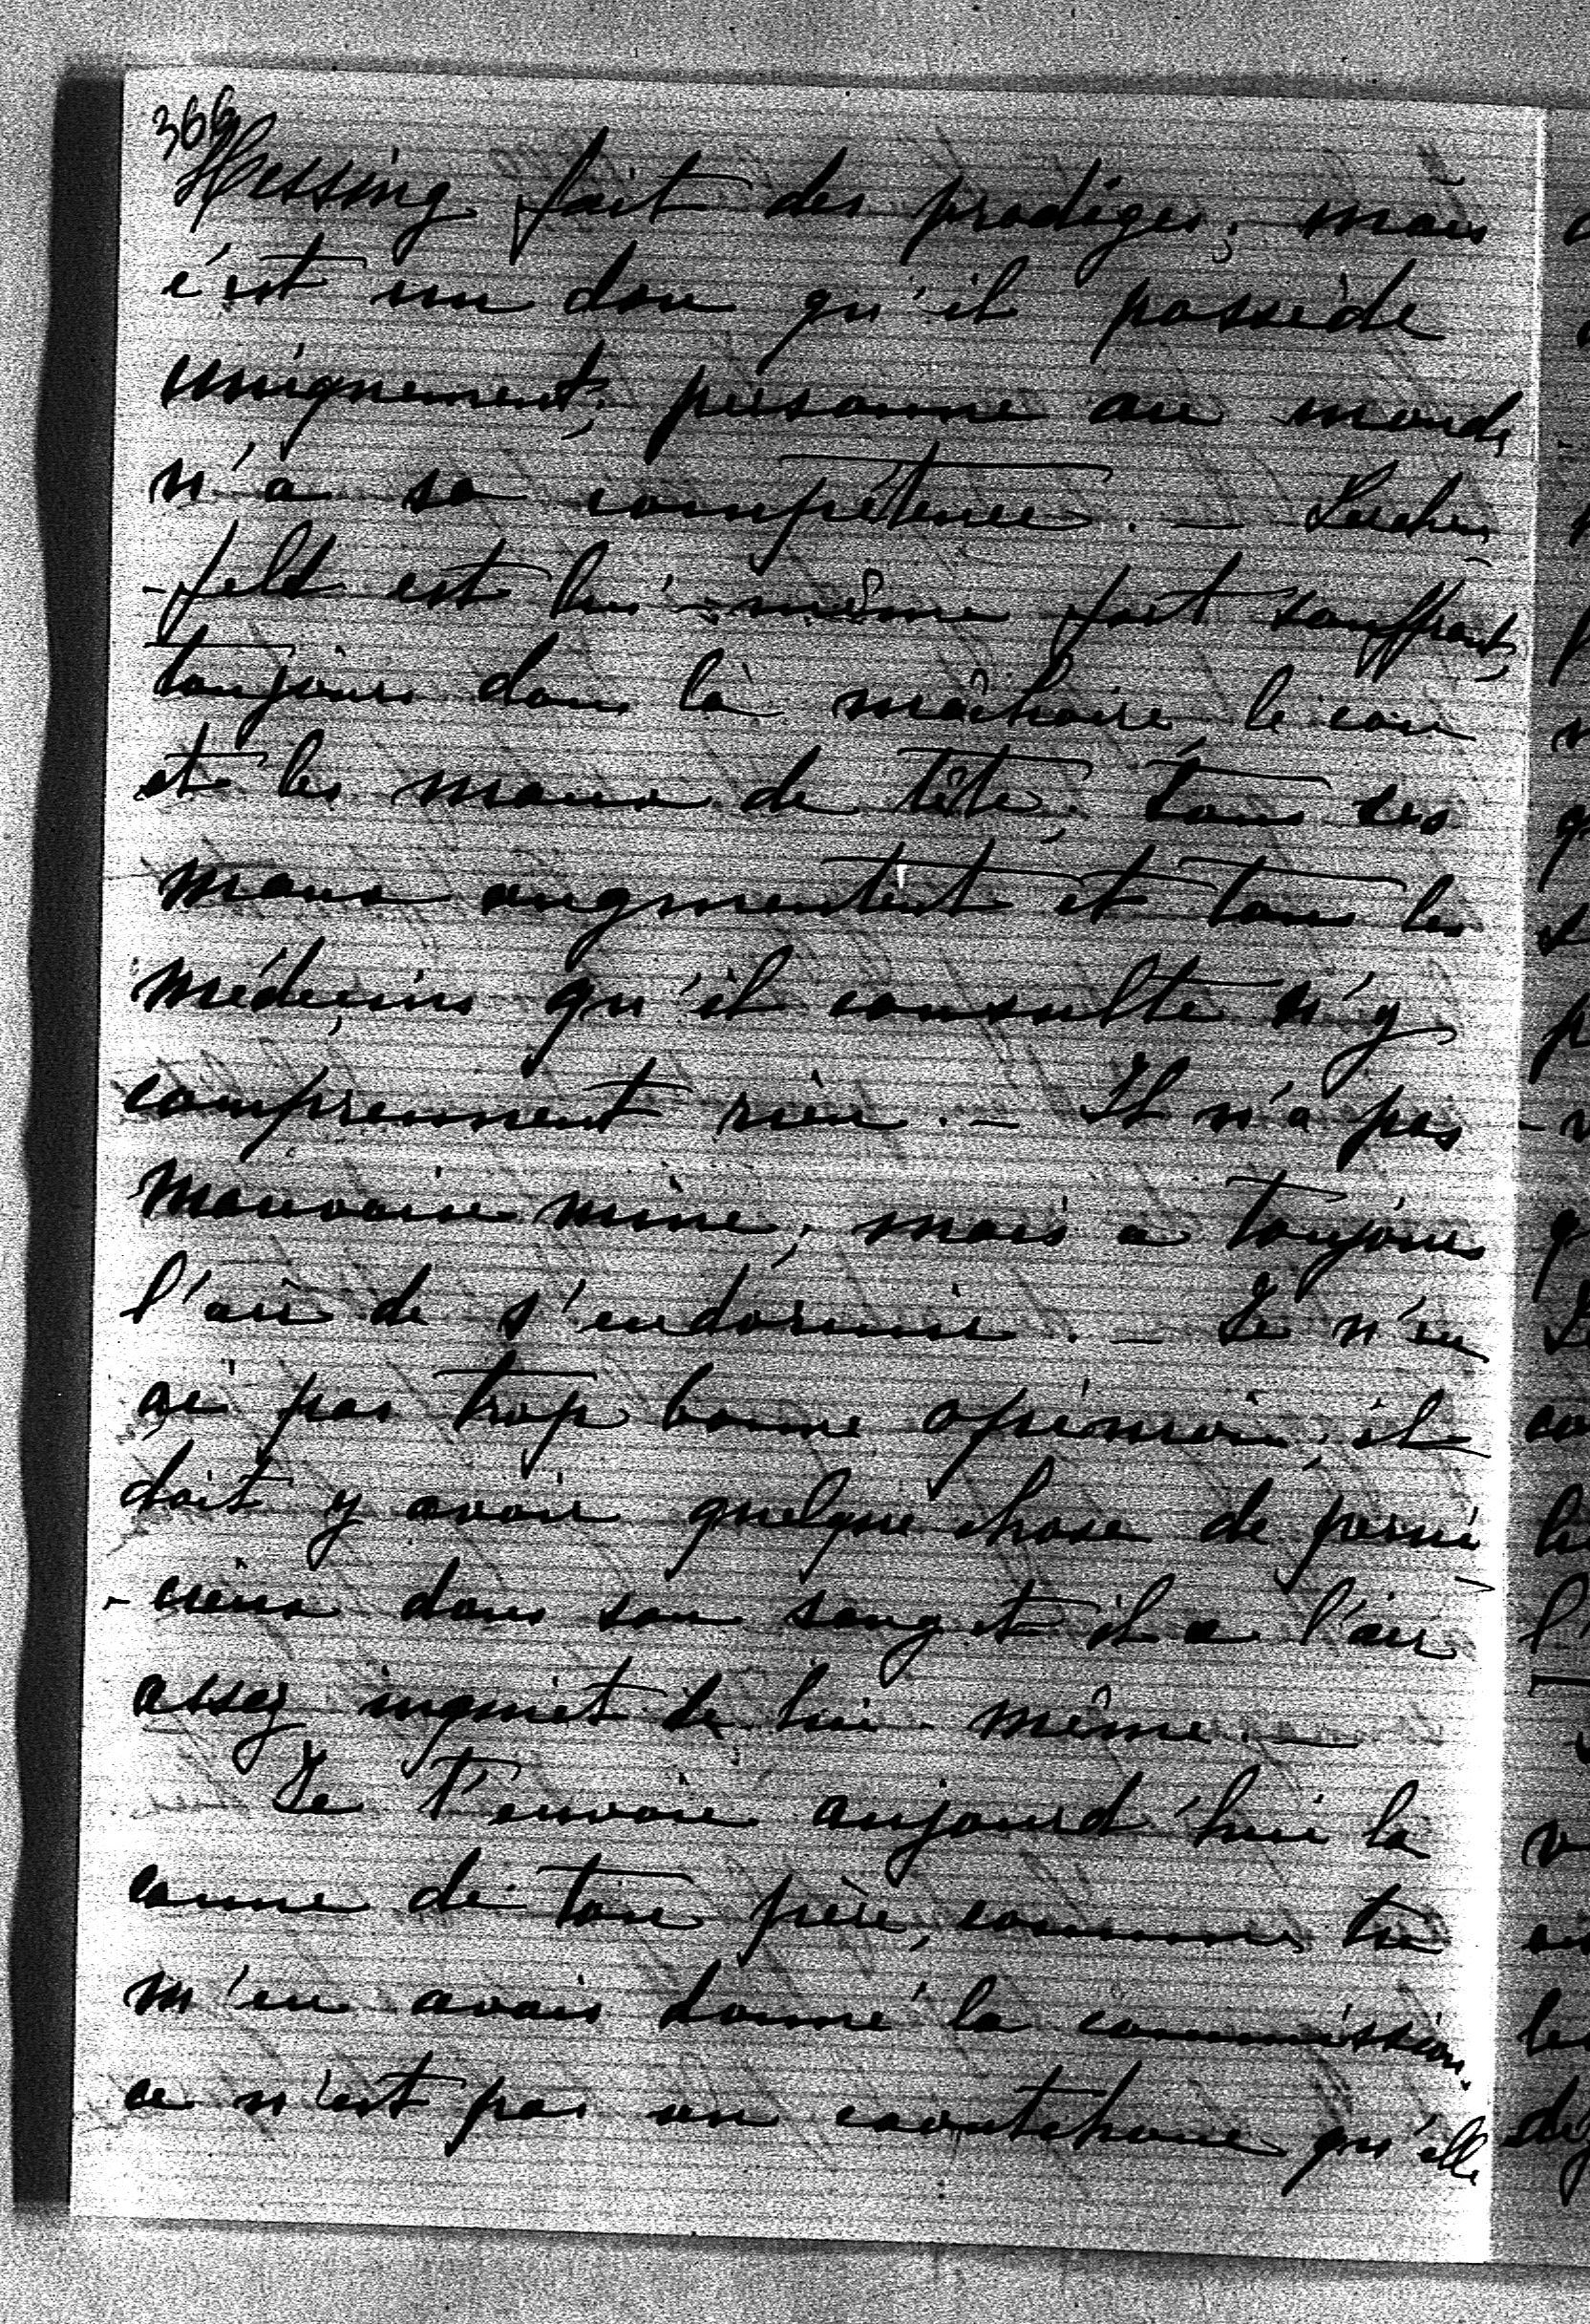 366
Hessing fait des prodiges; mais
c'est un don qu'il possède
uniquement; personne au monde
n'a sa compétence. — Lerchen
-feld est lui-même fort souffrant,
toujours dans la mâchoire, le cou
et les maux de tête; tous ces
maux augmentent et tous les
médecins qu'il consulte n'y
comprennent rien. — Il n'a pas
mauvaise mine, mais a toujours
l'air de s'endormir. — Je n'en
ai pas trop bonne opinion, il
doit y avoir quelque chose de perni
-cieux dans son sang et il a l'air
assez inquiet de lui-même. —
Je t'envoie aujourd'hui la
canne de ton père, comme tu
m'en avais donné la commission.
ce n'est pas en caoutchouc qu'elle